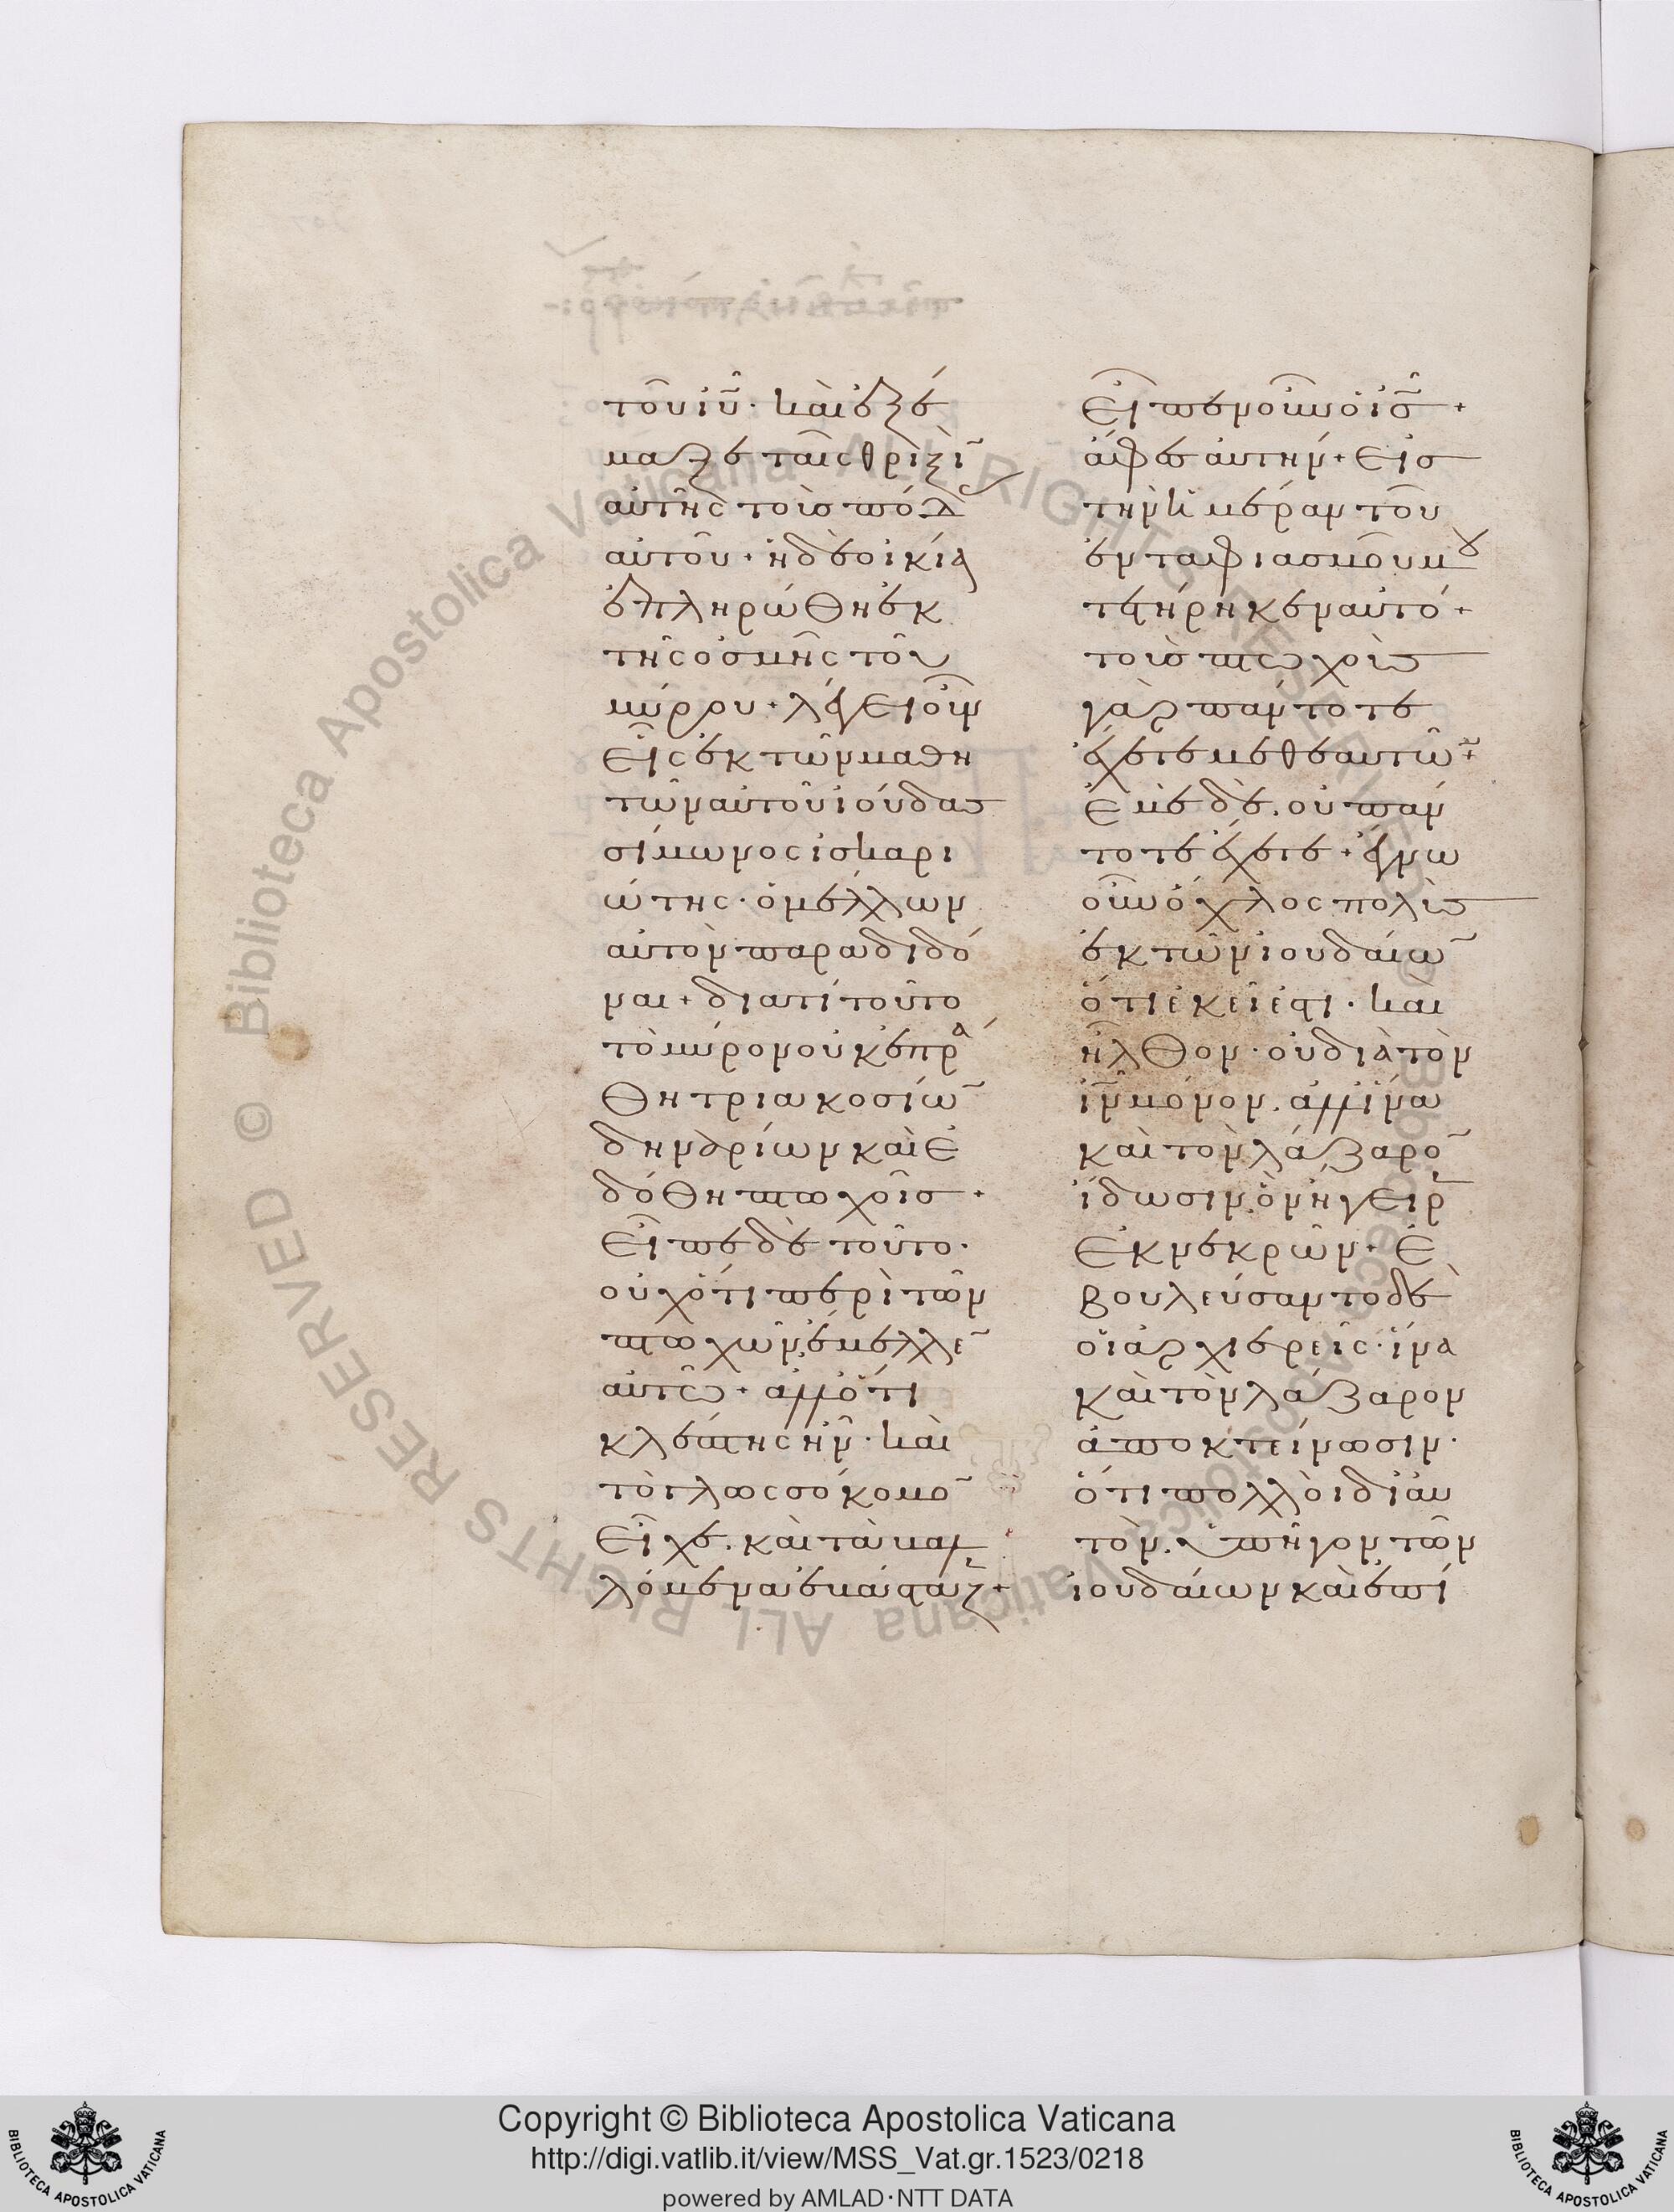 τοῦ ἰῦ· καὶ ἐξέ
μαξε ταῖς θριξὶ̄
αὐτῆς τοὺσ πόδ
αὐτοῦ + ἡ δὲ οἰκία
ἐπληρώθη ἐκ
τῆς ὀσμῆς τοῦ
μύρου + λέγει οὖν
εἷς ἐκ τῶν μαθη
τῶν αὐτοῦ ἰούδασ
σίμωνος ἰσκαρι
ώτης· ὁ μέλλων
αὐτὸν παραδιδό
ναι + διατί τοῦτο
τὸ μύρον οὐκ ἐπρά
θη τριακοσίω̄
δηναρίων καὶ ἐ
δόθη πτωχοῖσ +
εἶπε δὲ τοῦτο·
οὐχ ὅτι περὶ τῶν
πτωχῶν, ἔμελλε̄
αὐτῶ + ἀλλ ὅτι
κλέπτης ἦν· καὶ
τὸ γλωσσόκομο̄
εἶχε. καὶ τὰ βαλ
λόμενα ἐβάσταζ +
εἶπεν οὖν ὁ ἰσ̄ +
ἄφεσ αὐτήν + εἰσ
τὴν ἡμέραν τοῦ
ἐνταφιασμοῦ μου
τετήρηκεν αὐτό +
τοὺσ πτωχοὺσ
γὰρ πάντοτε
ἔχετε μεθ ἑαυτῶ̄ +
ἐμὲ δὲ. οὐ πάν
τοτε ἔχετε + ἔγνω
οὖν ὄχλος πολὺσ
ἐκ τῶν ἰουδαίω̄
ὅτι ἐκεῖ ἐστι· καὶ
ἦλθον· οὐ διὰ τὸν
ἰν̄ μόνον. ἀλλ ἵνα
καὶ τὸν λάζαρο̄
ἴδωσιν. ὃν ἤγειρ
ἐκ νεκρῶν + ἐ
βουλεύσαντο δὲ
οἱ ἀρχιερεῖς· ἵνα
καὶ τὸν λάζαρον
ἀποκτείνωσιν·
ὅτι πολλοὶ δι αὐ
τὸν. ὑπῆγον τῶν
ἰουδαίων καὶ ἐπί
Copyright © Biblioteca Apostolica Vaticana
http://digi.vatlib.it/view/MSS_Vat.gr.1523/0218
powered by AMLAD·NTT DATA